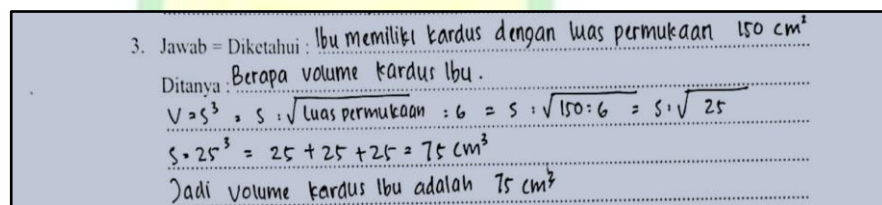 3. Jawab = Diketahui : Ibu memiliki kardus dengan luas permukaan 150 cm²
Ditanya : Berapa volume kardus Ibu.
V = s³ = s : √luas permukaan : 6 = s : √150 : 6 = s : √25
s = 25³ = 25 + 25 + 25 = 75 cm³
Jadi volume kardus Ibu adalah 75 cm³